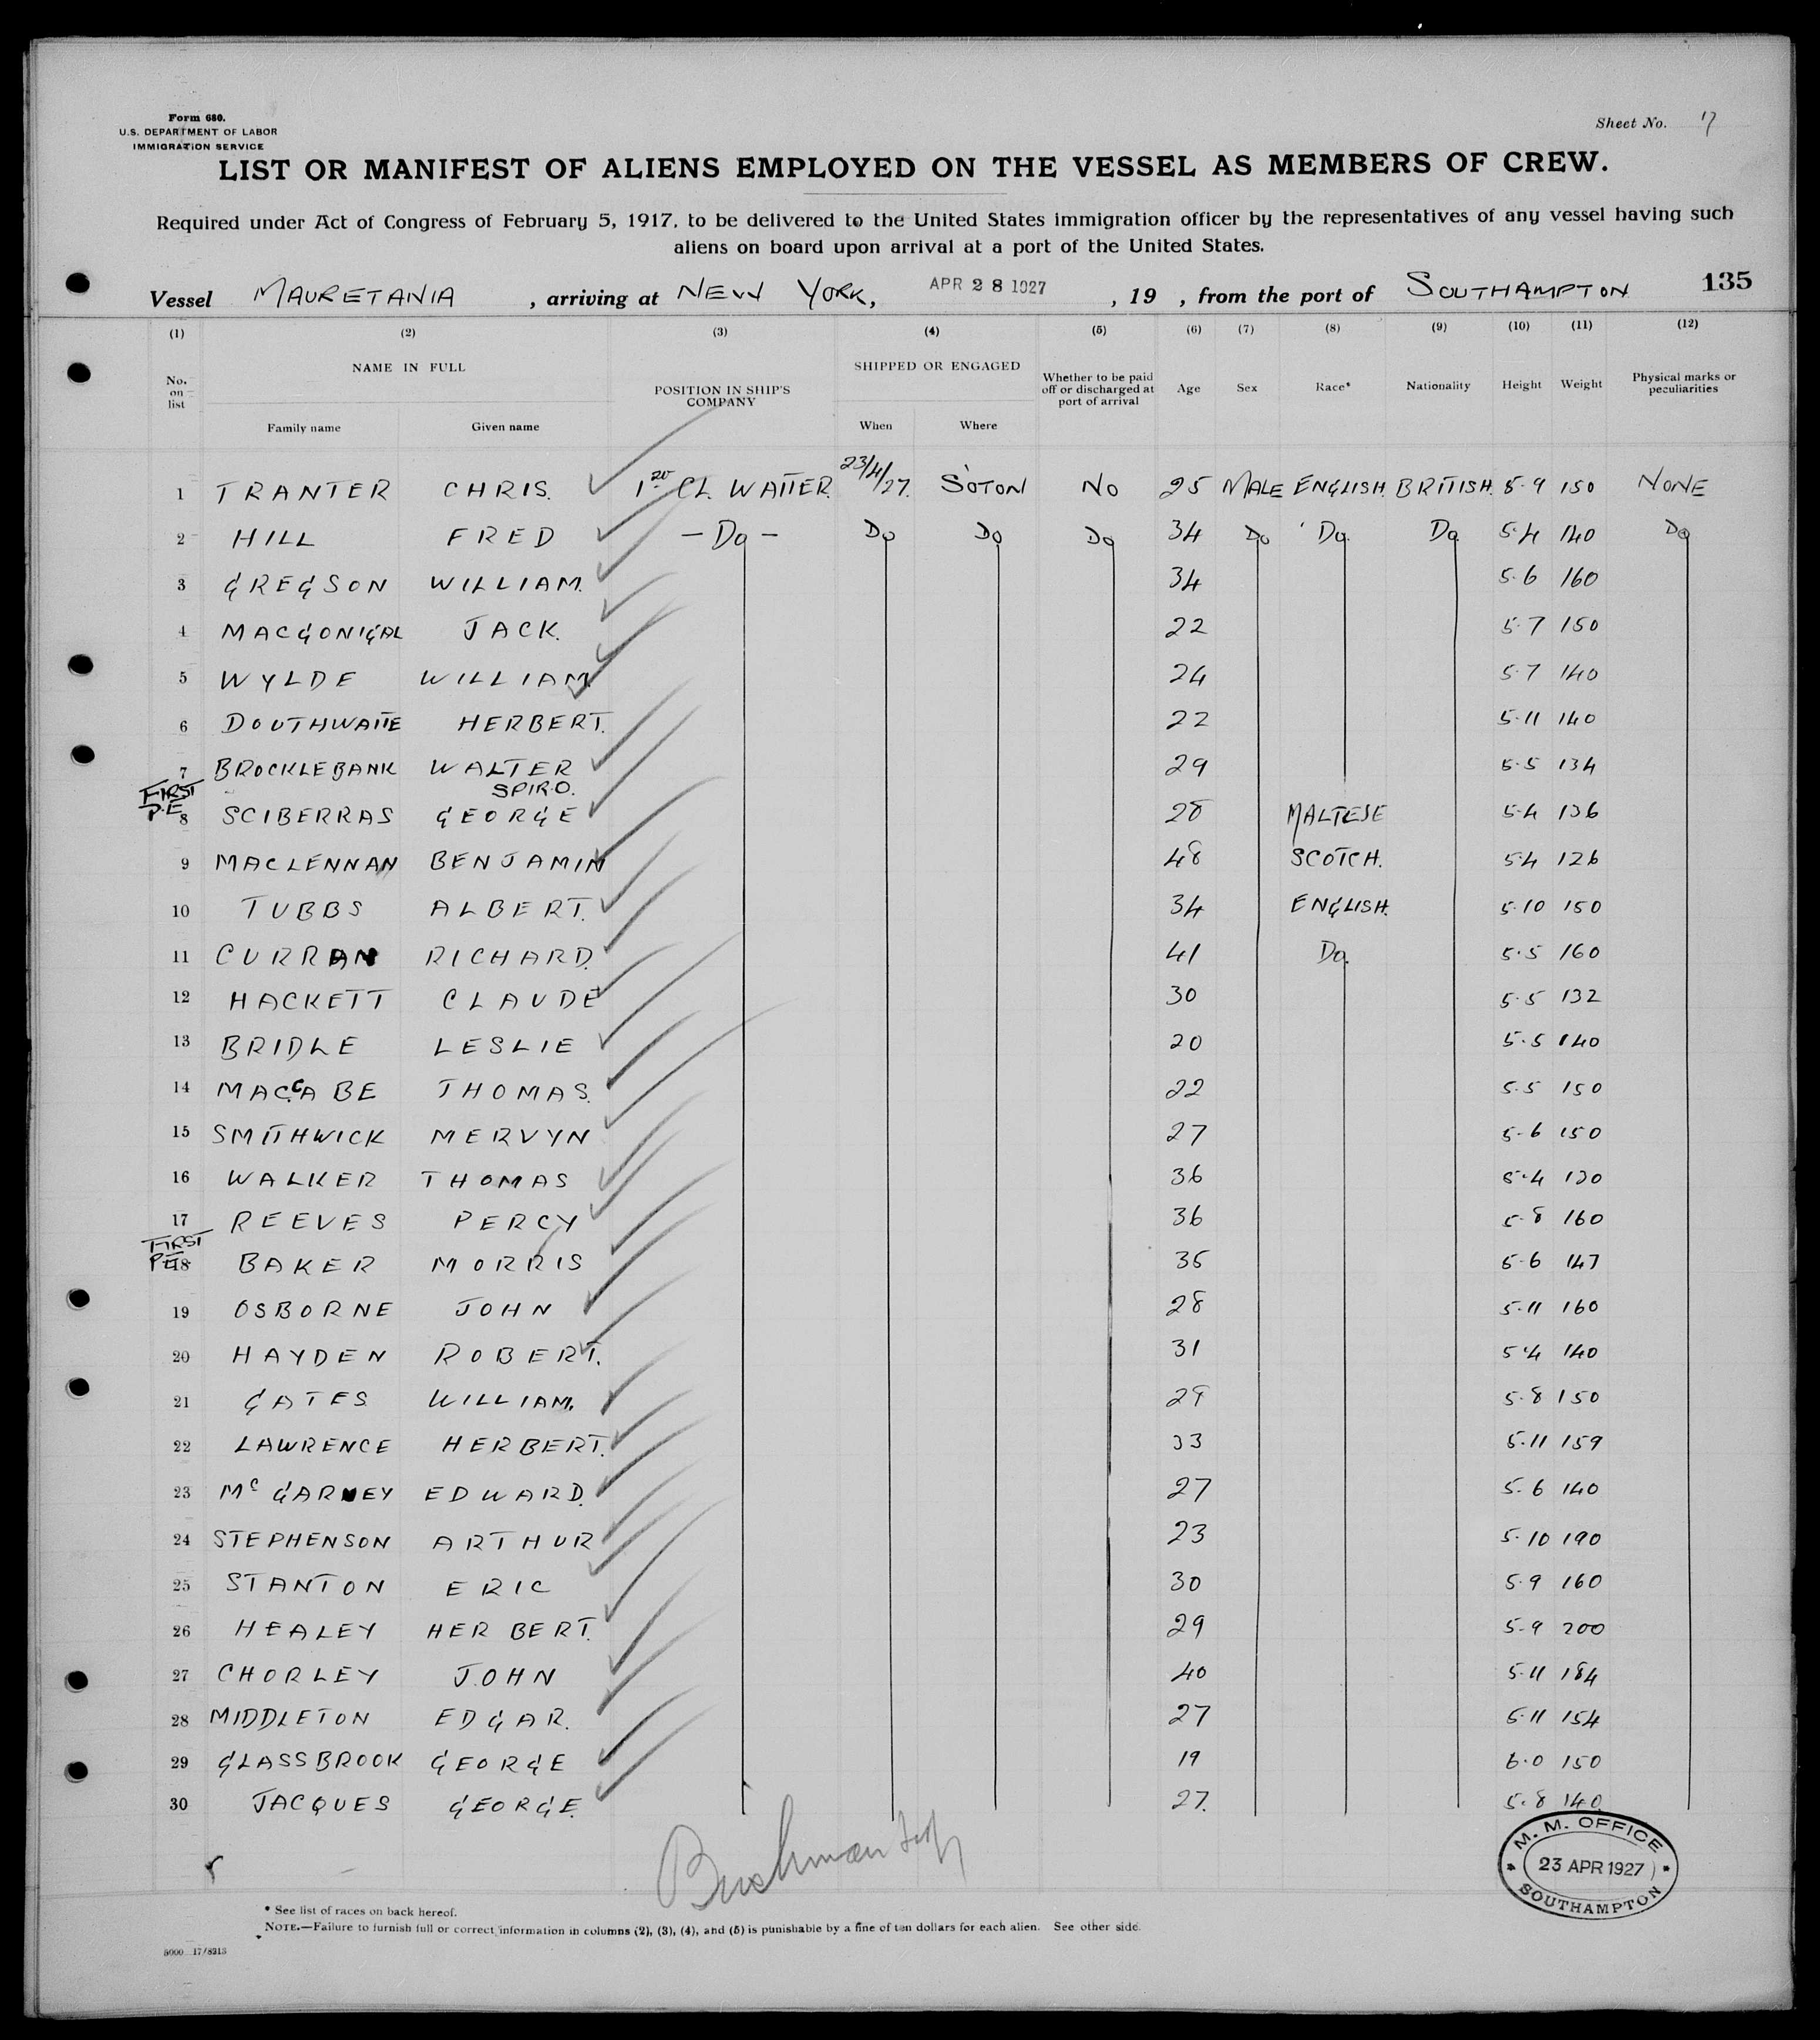 Form 680.
U.S. DEPARTMENT OF LABOR
IMMIGRATION SERVICE
Sheet No. 17
LIST OR MANIFEST OF ALIENS EMPLOYED ON THE VESSEL AS MEMBERS OF CREW.
Required under Act of Congress of February 5, 1917, to be delivered to the United States immigration officer by the representatives of any vessel having such
aliens on board upon arrival at a port of the United States.
Vessel MAURETANIA , arriving at NEW YORK, APR 28 1927 , 19 , from the port of SOUTHAMPTON 135
(1) (2) (3) (4) (5) (6) (7) (8) (9) (10) (11) (12)
No. on list NAME IN FULL Family name Given name POSITION IN SHIP'S COMPANY SHIPPED OR ENGAGED When Where Whether to be paid off or discharged at port of arrival Age Sex Race* Nationality Height Weight Physical marks or peculiarities
1 TRANTER CHRIS. 1st CL. WAITER 23/4/27. S'OTON NO 25 MALE ENGLISH. BRITISH. 5.9 150 NONE
2 HILL FRED - Do - Do Do Do 34 Do Do. Do 5.4 140 Do
3 GREGSON WILLIAM. 34 5.6 160
4 MACGONIGAL JACK. 22 5.7 150
5 WYLDE WILLIAM 24 5.7 140
6 DOUTHWAITE HERBERT. 22 5.11 140
7 BROCKLEBANK WALTER 29 5.5 134
FIRST P.E SPIRO.
8 SCIBERRAS GEORGE 28 MALTESE 5.4 136
9 MACLENNAN BENJAMIN 48 SCOTCH. 5.4 126
10 TUBBS ALBERT. 34 ENGLISH. 5.10 150
11 CURRAN RICHARD. 41 Do. 5.5 160
12 HACKETT CLAUDE 30 5.5 132
13 BRIDLE LESLIE 20 5.5 140
14 MACCABE THOMAS. 22 5.5 150
15 SMITHWICK MERVYN 27 5.6 150
16 WALKER THOMAS 36 5.4 130
17 REEVES PERCY 36 5.8 160
FIRST P.E
18 BAKER MORRIS 35 5.6 147
19 OSBORNE JOHN 28 5.11 160
20 HAYDEN ROBERT. 31 5.4 140
21 GATES WILLIAM. 29 5.8 150
22 LAWRENCE HERBERT. 33 5.11 159
23 McGARVEY EDWARD. 27 5.6 140
24 STEPHENSON ARTHUR 23 5.10 190
25 STANTON ERIC 30 5.9 160
26 HEALEY HERBERT. 29 5.9 200
27 CHORLEY JOHN 40 5.11 184
28 MIDDLETON EDGAR. 27 5.11 154
29 GLASSBROOK GEORGE 19 6.0 150
30 JACQUES GEORGE. 27. 5.8 140
M. M. OFFICE
23 APR 1927
SOUTHAMPTON
* See list of races on back hereof.
NOTE.—Failure to furnish full or correct information in columns (2), (3), (4), and (5) is punishable by a fine of ten dollars for each alien. See other side.
5000 17/8213